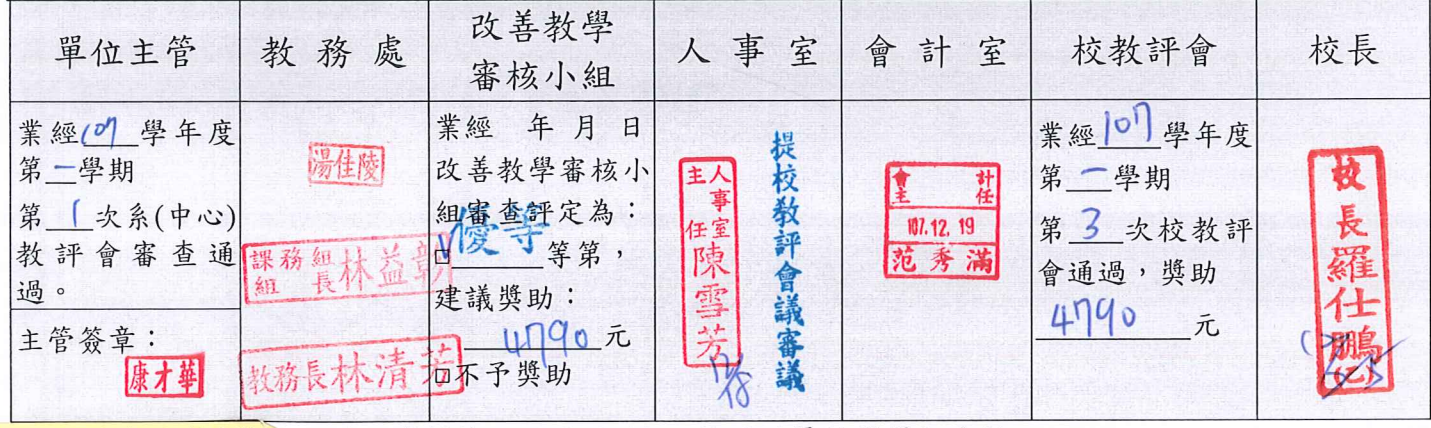 單位主管
教務處
改善教學
審核小組
人事室
會計室
校教評會
校長
業經107學年度
第一學期
第1次系(中心)
教評會審查通
過。
主管簽章：
康才華
湯佳陵
課務組
組長林益彰
教務長林清芬
業經 年 月 日
改善教學審核小
組審查評定為：
☑優等等第，
建議獎助：
4790元
□不予獎助
人事室
主任陳雪芳
提校教評會議審議
會計
主任
107.12.19
范秀滿
業經107學年度
第一學期
第3次校教評
會通過，獎助
4790元
校長羅仕鵬